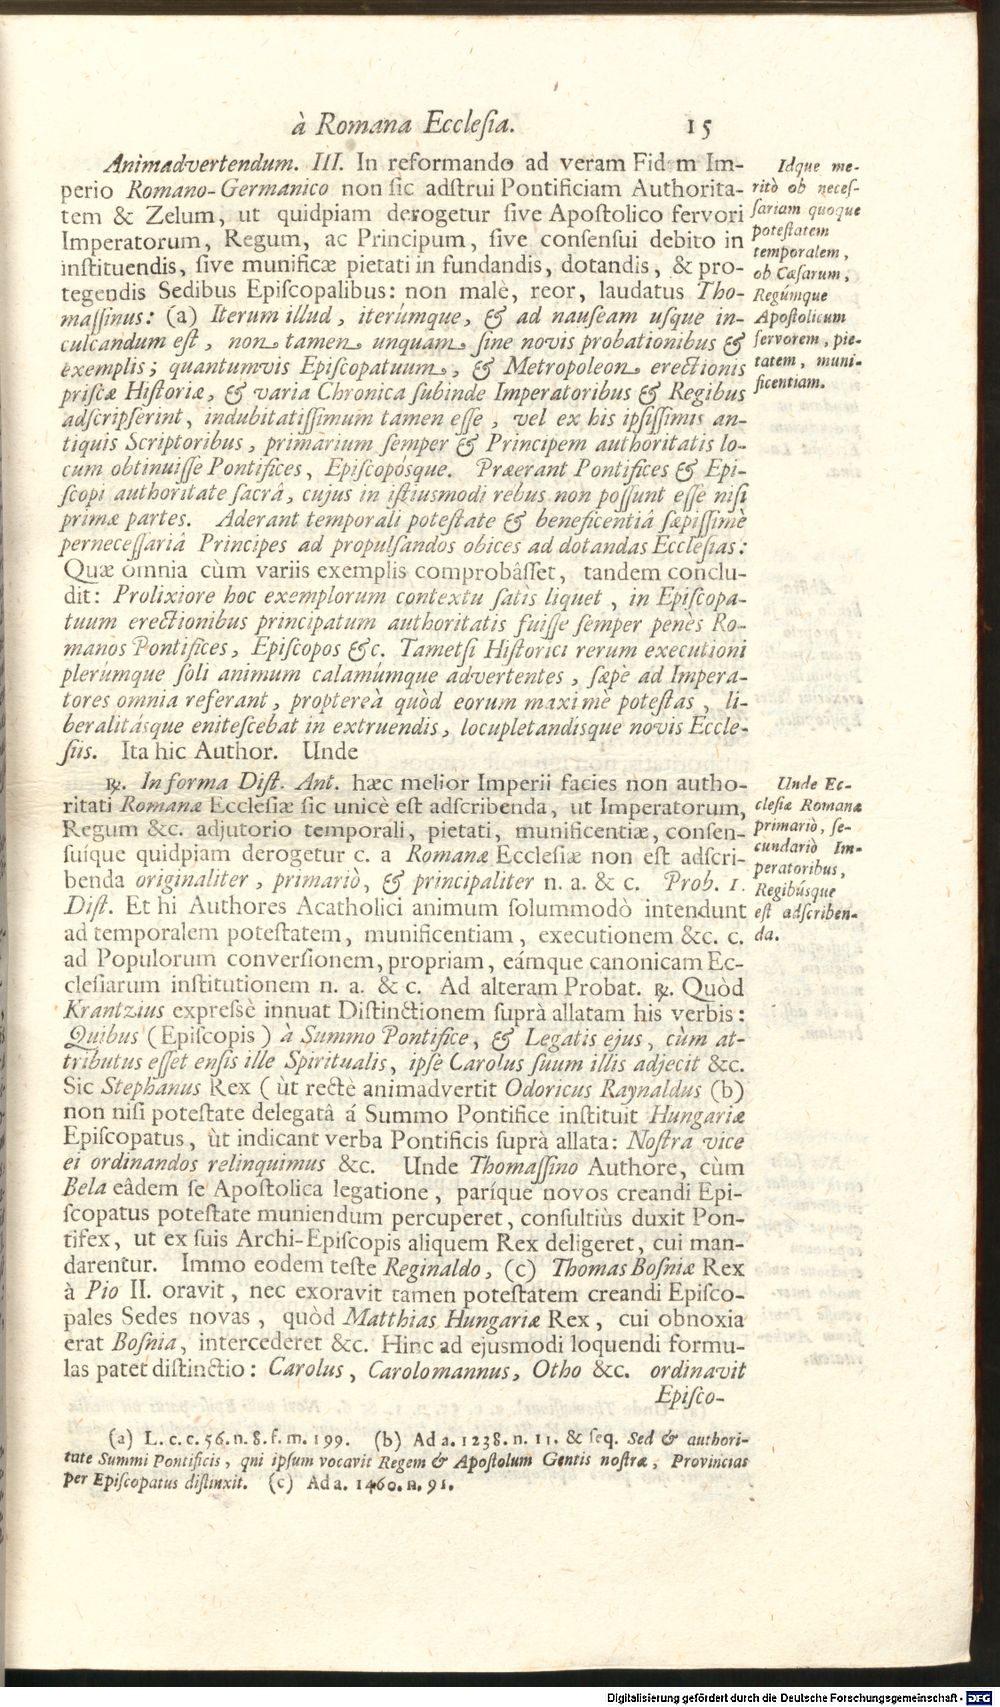 à Romana Ecclesia. 15
Animadvertendum. III. In reformando ad veram Fid m Im-
perio Romano-Germanico non sic adstrui Pontificiam Authorita-
tem & Zelum, ut quidpiam derogetur sive Apostolico fervori
Imperatorum, Regum, ac Principum, sive consensui debito in
instituendis, sive munificæ pietati in fundandis, dotandis, & pro-
tegendis Sedibus Episcopalibus: non malè, reor, laudatus Tho-
massinus: (a) Iterum illud, iterúmque, & ad nauseam usque in-
culcandum est, non tamen unquam sine novis probationibus &
exemplis; quantumvis Episcopatuum, & Metropoleon erectionis
priscæ Historiæ, & varia Chronica subinde Imperatoribus & Regibus
adscripserint, indubitatissimum tamen esse, vel ex his ipsissimis an-
tiquis Scriptoribus, primarium semper & Principem authoritatis lo-
cum obtinuisse Pontifices, Episcopósque. Præerant Pontifices & Epi-
scopi authoritate sacrâ, cujus in istiusmodi rebus non possunt esse nisi
primæ partes. Aderant temporali potestate & beneficentiâ sæpissimè
pernecessariâ Principes ad propulsandos obices ad dotandas Ecclesias:
Quæ omnia cùm variis exemplis comprobâsset, tandem conclu-
dit: Prolixiore hoc exemplorum contextu satis liquet, in Episcopa-
tuum erectionibus principatum authoritatis fuisse semper penès Ro-
manos Pontifices, Episcopos &c. Tametsi Historici rerum executioni
plerúmque soli animum calamúmque advertentes, sæpè ad Impera-
tores omnia referant, proptereà quòd eorum maximè potestas, li-
beralitásque enitescebat in extruendis, locupletandisque novis Eccle-
siis. Ita hic Author. Unde
℞. In forma Dist. Ant. hæc melior Imperii facies non autho-
ritati Romanæ Ecclesiæ sic unicè est adscribenda, ut Imperatorum,
Regum &c. adjutorio temporali, pietati, munificentiæ, consen-
suíque quidpiam derogetur c. a Romanæ Ecclesiæ non est adscri-
benda originaliter, primariò, & principaliter n. a. & c. Prob. 1.
Dist. Et hi Authores Acatholici animum solummodò intendunt
ad temporalem potestatem, munificentiam, executionem &c. c.
ad Populorum conversionem, propriam, eámque canonicam Ec-
clesiarum institutionem n. a. & c. Ad alteram Probat. ℞. Quòd
Krantzius expressè innuat Distinctionem suprà allatam his verbis:
Quibus (Episcopis) à Summo Pontifice, & Legatis ejus, cùm at-
tributus esset ensis ille Spiritualis, ipse Carolus suum illis adjecit &c.
Sic Stephanus Rex (ùt rectè animadvertit Odoricus Raynaldus (b)
non nisi potestate delegatâ á Summo Pontifice instituit Hungariæ
Episcopatus, ùt indicant verba Pontificis suprà allata: Nostra vice
ei ordinandos relinquimus &c. Unde Thomassino Authore, cùm
Bela eâdem se Apostolica legatione, paríque novos creandi Epi-
scopatus potestate muniendum percuperet, consultiùs duxit Pon-
tifex, ut ex suis Archi-Episcopis aliquem Rex deligeret, cui man-
darentur. Immo eodem teste Reginaldo, (c) Thomas Bosniæ Rex
à Pio II. oravit, nec exoravit tamen potestatem creandi Episco-
pales Sedes novas, quòd Matthias Hungariæ Rex, cui obnoxia
erat Bosnia, intercederet &c. Hinc ad ejusmodi loquendi formu-
las patet distinctio: Carolus, Carolomannus, Otho &c. ordinavit
Episco-
Idque me-
ritò ob neces-
sariam quoque
potestatem
temporalem,
ob Cæsarum,
Regúmque
Apostolicum
fervorem, pie-
tatem, muni-
ficentiam.
Unde Ec-
clesiæ Romanæ
primariò, se-
cundariò Im-
peratoribus,
Regibúsque
est adscriben-
da.
(a) L. c. c. 56. n. 8. f. m. 199. (b) Ad a. 1238. n. 11. & seq. Sed & authori-
tate Summi Pontificis, qni ipsum vocavit Regem & Apostolum Gentis nostræ, Provincias
per Episcopatus distinxit. (c) Ad a. 1460. n. 91.
Digitalisierung gefördert durch die Deutsche Forschungsgemeinschaft - DFG